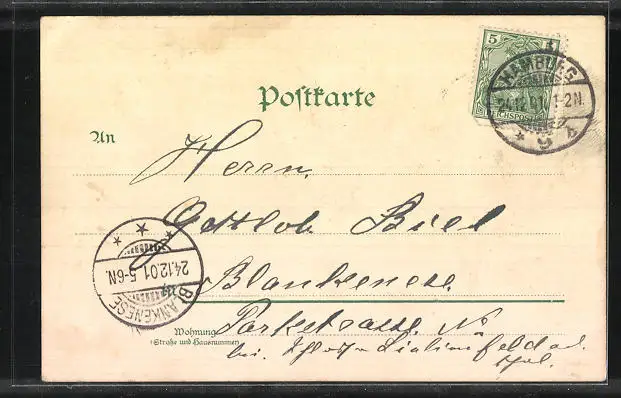 5
REICHSPOST
HAMBURG
24.12.01. 1-2N.
* 9 b
Postkarte
An
Herrn
Gottlob Biel
Blankenese
24.12.01. 5-6N.
BLANKENESE
Wohnung
(Straße und Hausnummer)
Parkstrasse No
bei